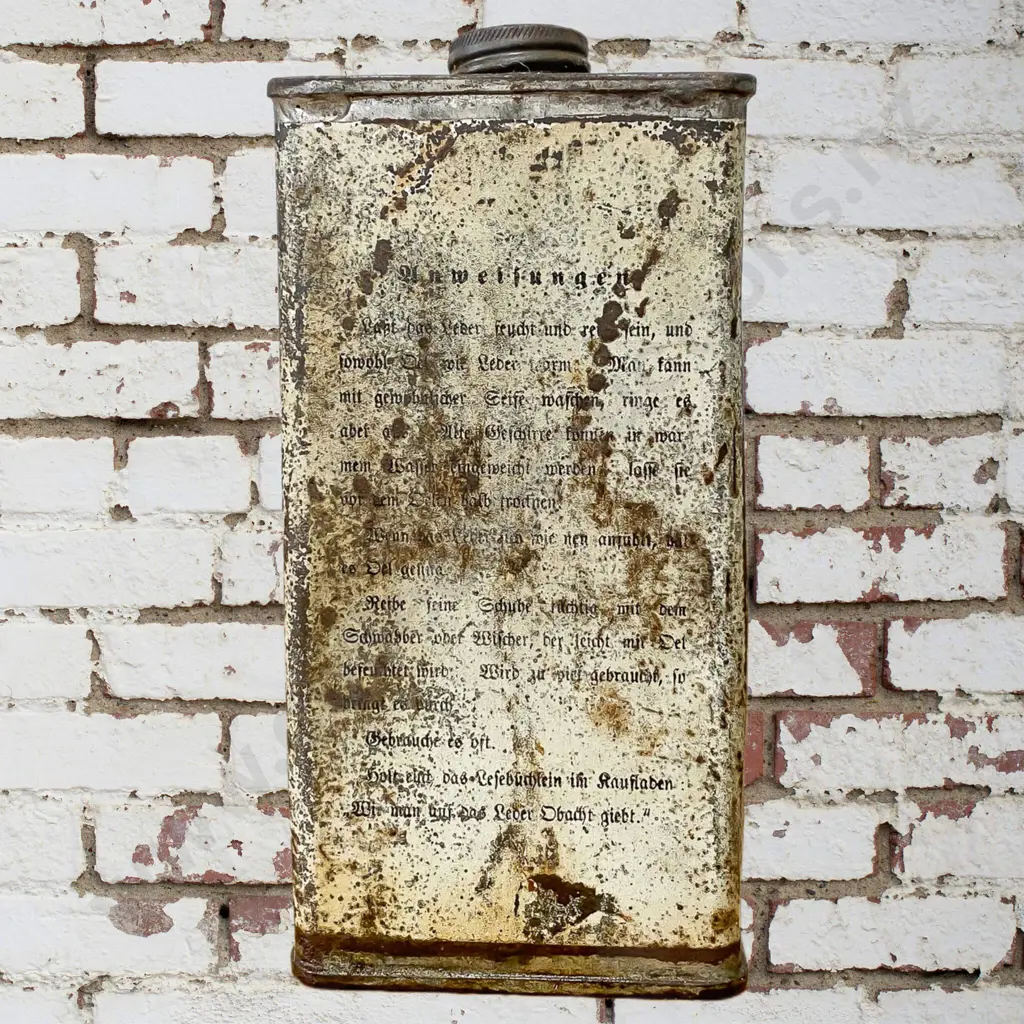 Anweisungen
Laßt das Leder feucht und rein sein, und
sowohl Oel wie Leder warm. Man kann
mit gewöhnlicher Seife waschen, ringe es
aber aus. Alte Geschirre können in war-
mem Wasser eingeweicht werden, lasse sie
vor dem Oelen halb trocknen.
Wenn das Leder sich wie neu anfühlt, hat
es Oel genug.
Reibe seine Schuhe tüchtig mit dem
Schwabber oder Wischer, der leicht mit Oel
befeuchtet wird. Wird zu viel gebraucht, so
dringt es durch.
Gebrauche es oft.
Holt euch das Lesebüchlein im Kaufladen
„Wie man auf das Leder Obacht giebt."